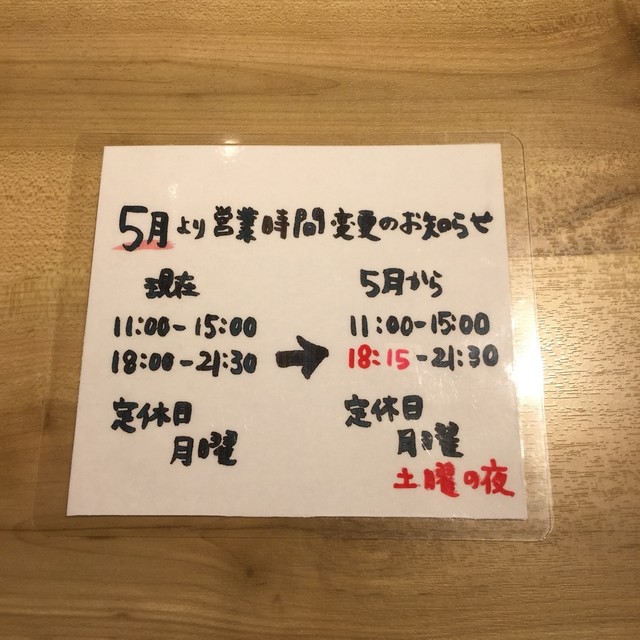 5月より営業時間変更のお知らせ
現在
11:00-15:00
18:00-21:30
定休日
月曜
→
5月から
11:00-15:00
18:15-21:30
定休日
月曜
土曜の夜